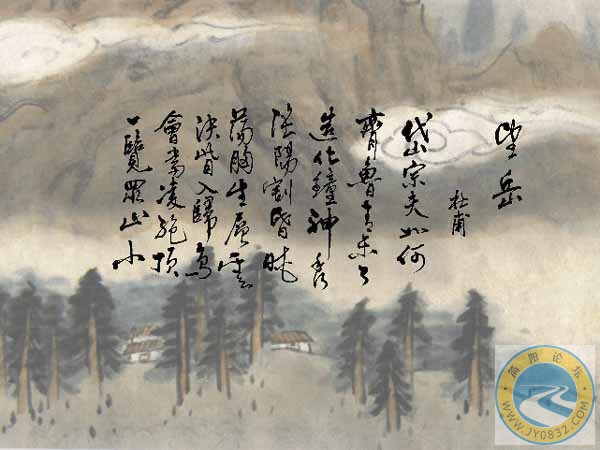 望岳
杜甫
岱宗夫如何
齊魯青未了
造化鐘神秀
陰陽割昏曉
蕩胸生層雲
決眥入歸鳥
會當凌絕頂
一覽眾山小
简阳论坛
WWW.JY0832.COM